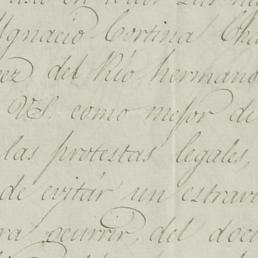 Ygnacio Cortina Cha
ez del Rio, hermano
V.S. como mejor de
las protestas legales,
de evitár un estravi
ra ocurrir, del docu